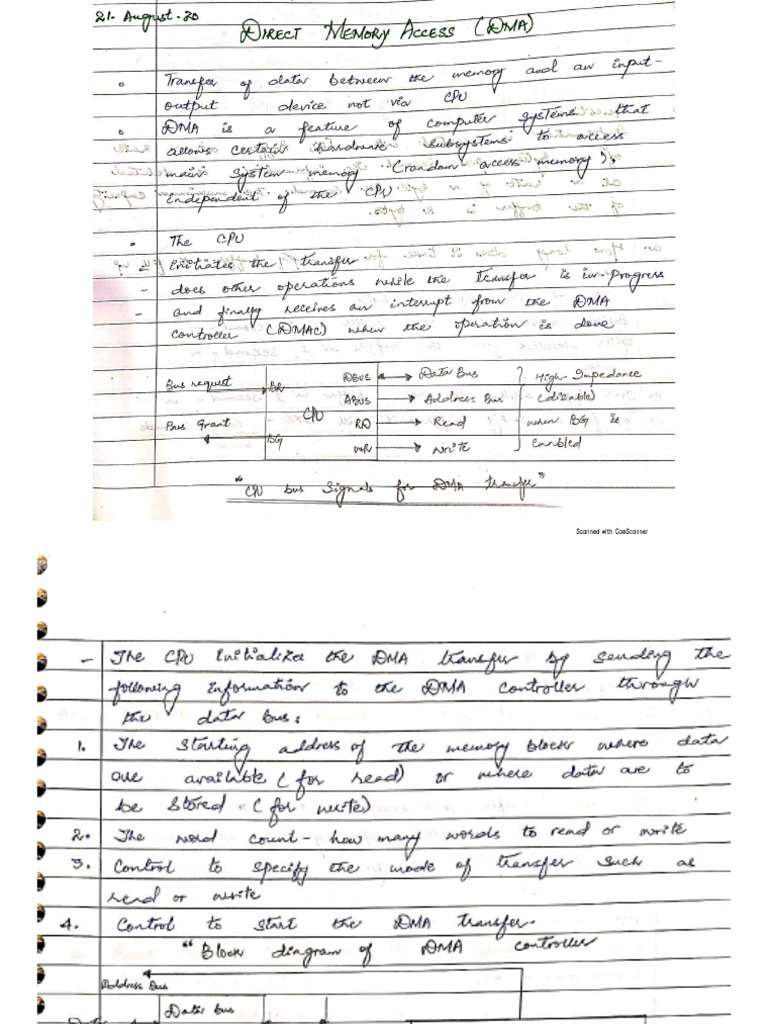 21. August. 20
DIRECT MEMORY ACCESS (DMA)
Transfer of data between the memory and an input-
output device not via CPU
DMA is a feature of computer systems that
allows certain hardware subsystems to access
main system memory (random access memory),
independent of the CPU
The CPU
Initiates the transfer
- does other operations while the transfer is in progress
- and finally receives an interrupt from the DMA
controller (DMAC) when the operation is done
Bus request BR DBUS Data Bus High Impedance
ABUS Address Bus (disable)
Bus Grant CPU RD Read when BG is
BG WR Write enabled
"CPU bus signals for DMA transfer"
Scanned with CamScanner
- The CPU initializes the DMA transfer by sending the
following information to the DMA controller through
the data bus:
1. The starting address of the memory block where data
are available (for read) or where data are to
be stored (for write)
2. The word count - how many words to read or write
3. Control to specify the mode of transfer such as
read or write
4. Control to start the DMA transfer.
"Block diagram of DMA controller
Address Bus
Data bus